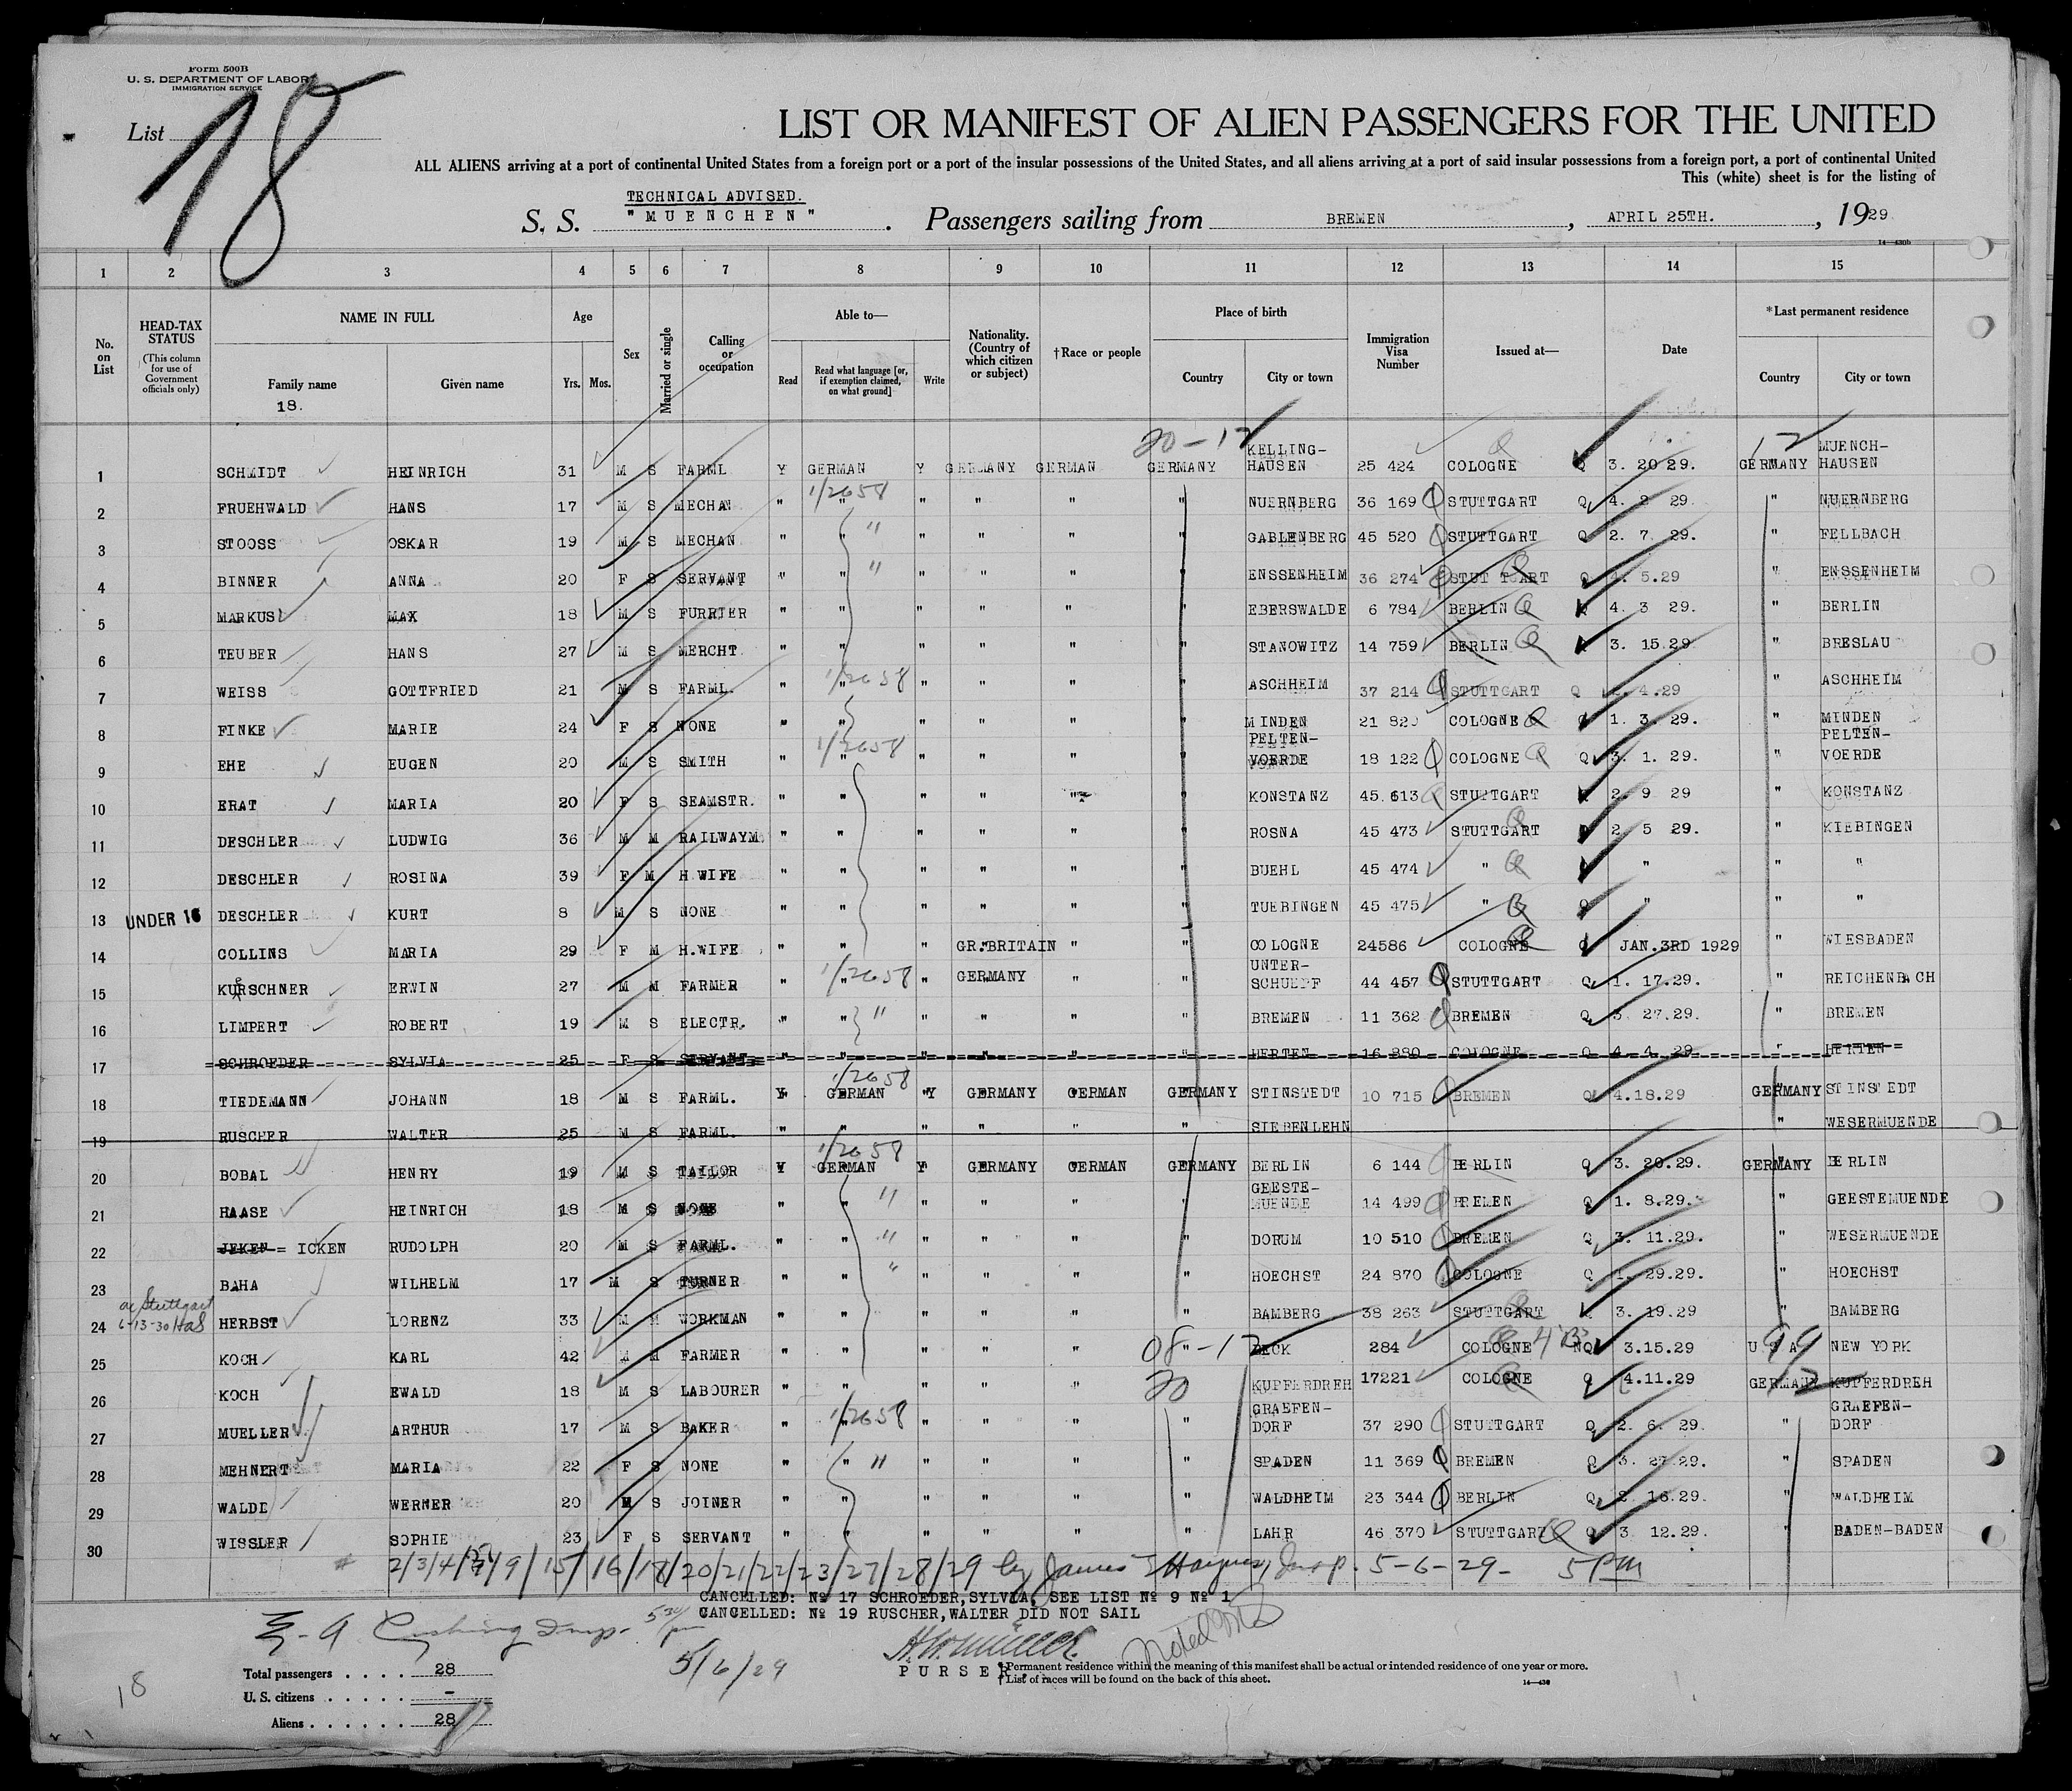 Form 500B
U. S. DEPARTMENT OF LABOR
IMMIGRATION SERVICE
List 18
LIST OR MANIFEST OF ALIEN PASSENGERS FOR THE UNITED
ALL ALIENS arriving at a port of continental United States from a foreign port or a port of the insular possessions of the United States, and all aliens arriving at a port of said insular possessions from a foreign port, a port of continental United
This (white) sheet is for the listing of
TECHNICAL ADVISED.
S. S. "MUENCHEN". Passengers sailing from BREMEN, APRIL 25TH., 1929
14—430b
1 2 3 4 5 6 7 8 9 10 11 12 13 14 15
No. on List
HEAD-TAX STATUS (This column for use of Government officials only)
NAME IN FULL Family name Given name
18.
Age Yrs. Mos.
Sex
Married or single
Calling or occupation
Able to— Read Read what language [or, if exemption claimed, on what ground] Write
Nationality. (Country of which citizen or subject)
†Race or people
Place of birth Country City or town
Immigration Visa Number
Issued at—
Date
*Last permanent residence Country City or town
20-12 12
1 SCHMIDT HEINRICH 31 M S FARML Y GERMAN Y GERMANY GERMAN GERMANY KELLING-HAUSEN 25 424 COLOGNE Q 3. 20 29. GERMANY MUENCH-HAUSEN
2 FRUEHWALD HANS 17 M S MECHAN " 1/2658 " " " " " NUERNBERG 36 169 STUTTGART Q 4. 2 29 " NUERNBERG
3 STOOSS OSKAR 19 M S MECHAN " " " " " " GABLENBERG 45 520 STUTTGART Q 2. 7. 29. " FELLBACH
4 BINNER ANNA 20 F S SERVANT " " " " " " ENSSENHEIM 36 274 STUTTGART Q 4. 5.29 " ENSSENHEIM
5 MARKUS MAX 18 M S FURRIER " " " " " " EBERSWALDE 6 784 BERLIN Q 4. 3 29. " BERLIN
6 TEUBER HANS 27 M S MERCHT " " " " " " STANOWITZ 14 759 BERLIN Q 3. 15.29 " BRESLAU
7 WEISS GOTTFRIED 21 M S FARML. " 1/2658 " " " " " ASCHHEIM 37 214 STUTTGART Q 4.29 " ASCHHEIM
8 FINKE MARIE 24 F S NONE " " " " " " MINDEN 21 820 COLOGNE Q 1. 3. 29. " MINDEN
9 EHE EUGEN 20 M S SMITH " 1/2658 " " " " " PELTEN-VOERDE 18 122 COLOGNE Q 3. 1. 29. " PELTEN-VOERDE
10 ERAT MARIA 20 F S SEAMSTR. " " " " " " KONSTANZ 45 613 STUTTGART 2. 9 29 " KONSTANZ
11 DESCHLER LUDWIG 36 M M RAILWAYM. " " " " " " ROSNA 45 473 STUTTGART 2. 5 29. " KIEBINGEN
12 DESCHLER ROSINA 39 F M H.WIFE " " " " " " BUEHL 45 474 " " " "
13 UNDER 16 DESCHLER KURT 8 M S NONE " " " " " " TUEBINGEN 45 475 " Q " " "
14 COLLINS MARIA 29 F M H.WIFE " " " GR.BRITAIN " " COLOGNE 24586 COLOGNE Q JAN.3RD 1929 " WIESBADEN
15 KURSCHNER ERWIN 27 M M FARMER " 1/2658 " " GERMANY " " UNTER-SCHUEPF 44 457 STUTTGART Q 1. 17.29. " REICHENBACH
16 LIMPERT ROBERT 19 M S ELECTR. " " " " " " BREMEN 11 362 BREMEN Q 3 27.29. " BREMEN
17 SCHROEDER SYLVIA 25 F S SERVANT " " " " " " HERTEN 16 880 COLOGNE Q 4 4 29 " HERTEN
18 TIEDEMANN JOHANN 18 M S FARML. Y 1/2658 GERMAN Y GERMANY GERMAN GERMANY STINSTEDT 10 715 BREMEN Q 4.18.29 GERMANY STINSTEDT
19 RUSCHER WALTER 25 M S FARML. " " " " " " SIEBENLEHN " WESERMUENDE
20 BOBAL HENRY 19 M S TAILOR Y 1/2658 GERMAN Y GERMANY GERMAN GERMANY BERLIN 6 144 BERLIN Q 3. 20.29. GERMANY BERLIN
21 HAASE HEINRICH 18 M S NONE " " " " " " GEESTE-MUENDE 14 499 BREMEN Q 1. 8.29. " GEESTEMUENDE
22 JEKEN = ICKEN RUDOLPH 20 M S FARML. " " " " " " DORUM 10 510 BREMEN Q 3. 11.29. " WESERMUENDE
23 BAHA WILHELM 17 M S TURNER " " " " " " HOECHST 24 870 COLOGNE Q 1. 29.29. " HOECHST
at Stuttgart 6-13-30
24 HERBST LORENZ 33 M M WORKMAN " " " " " " BAMBERG 38 263 STUTTGART 3. 19.29 " BAMBERG
25 KOCH KARL 42 M M FARMER " " " " " 08-12 " BECK 284 COLOGNE NQ 3.15.29 U S A 99 NEW YORK
26 KOCH EWALD 18 M S LABOURER " " " " " 20 KUPFERDREH 17221 COLOGNE Q 4.11.29 GERMANY 12 KUPFERDREH
27 MUELLER ARTHUR 17 M S BAKER " 1/2658 " " " " " GRAEFEN-DORF 37 290 STUTTGART Q 2. 6. 29. " GRAEFEN-DORF
28 MEHNERT MARIA 22 F S NONE " " " " " " SPADEN 11 369 BREMEN Q 3. 27.29. " SPADEN
29 WALDE WERNER 20 M S JOINER " " " " " " WALDHEIM 23 344 BERLIN Q 2 16.29. " WALDHEIM
30 WISSLER SOPHIE 23 F S SERVANT " " " " " " LAHR 46 370 STUTTGART 3 12.29. " BADEN-BADEN
2/3/4/7/9/15/16/18/20/21/22/23/27/28/29 by James Insp. 5-6-29- 5 PM
CANCELLED: No 17 SCHROEDER,SYLVIA, SEE LIST No 9 No 1
CANCELLED: No 19 RUSCHER,WALTER DID NOT SAIL
5/6/29
Noted
PURSER.
Total passengers .... 28
U. S. citizens ..... -
Aliens ...... 28
18
*Permanent residence within the meaning of this manifest shall be actual or intended residence of one year or more.
†List of races will be found on the back of this sheet.
14—430